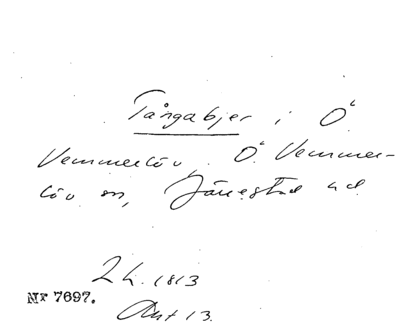 Tångabjer i Ö
Vemmerlöv, Ö. Vemmer-
löv sn, Järrestad hd
2 L. 1813
Nr 7697.
Akt 13.